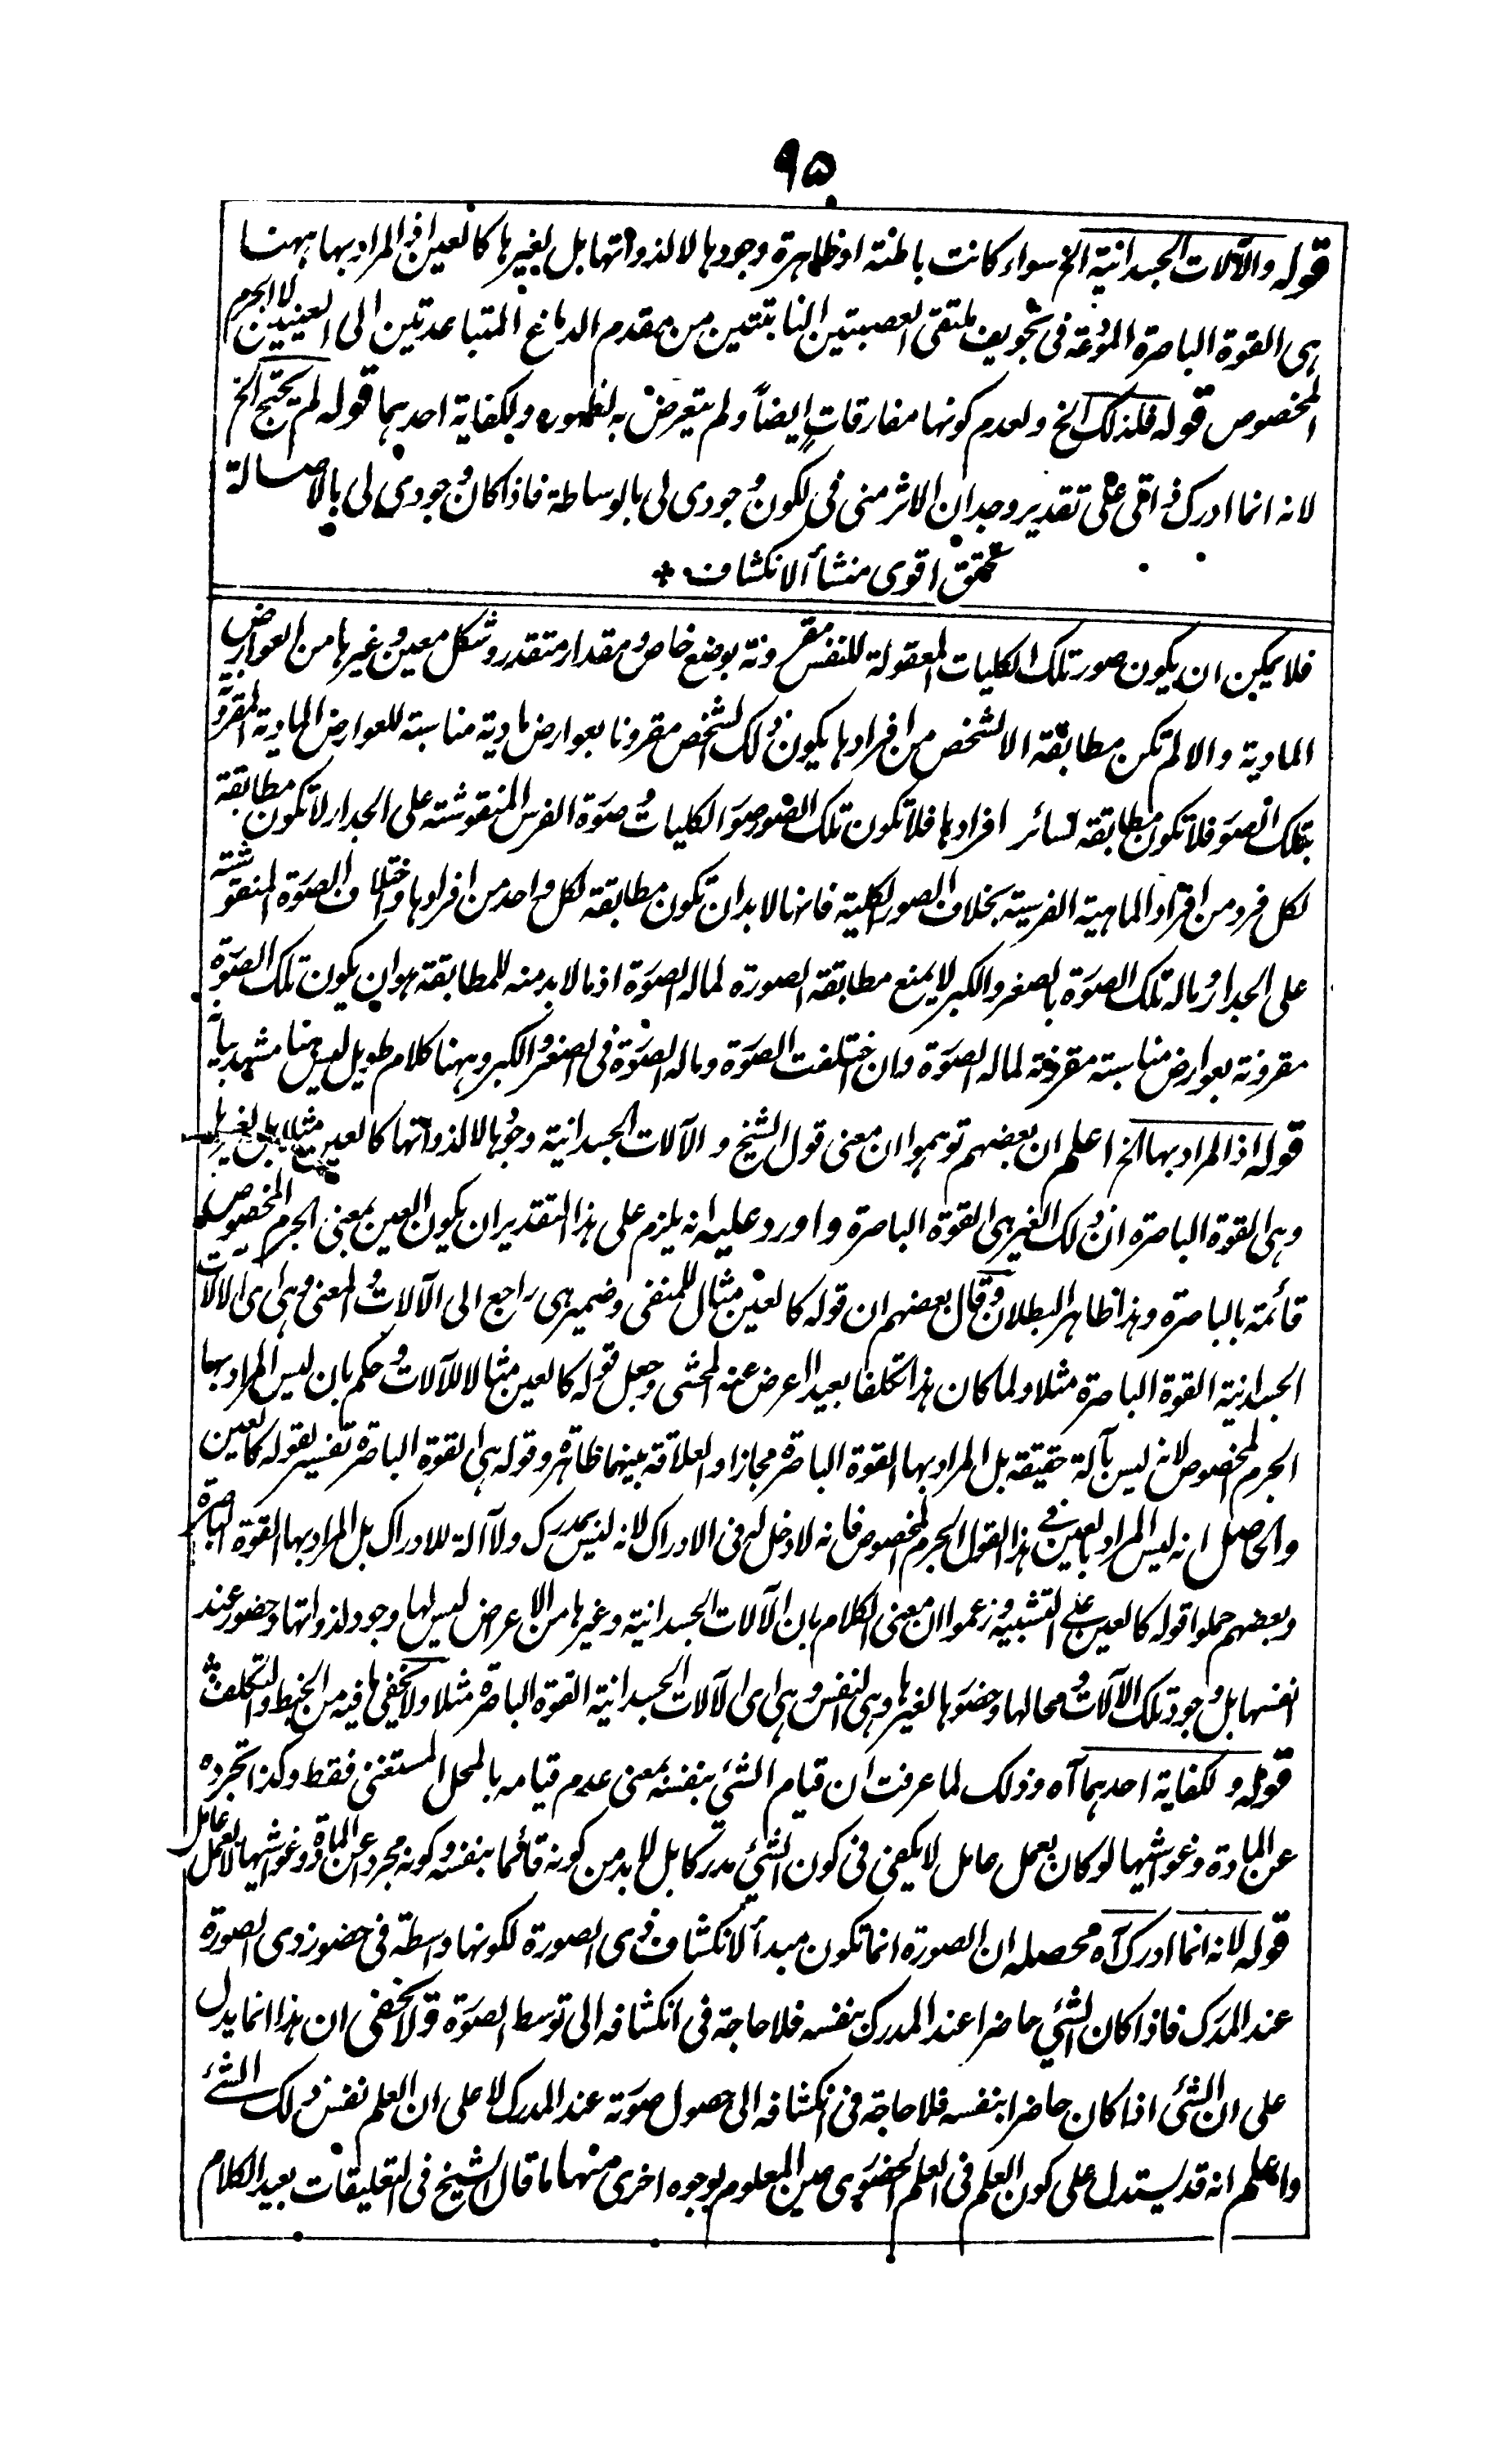 ۹۵
قوله والآلات الجسدانية الخ سواء كانت باطنة او ظاهرة وجودها لا لذواتها بل لغيرها كالعين اذ المراد بها ههنا
هى القوة الباصرة المودعة فى تجويف ملتقى العصبتين النابتتين من مقدم الدماغ المتباعدتين الى العينين لا الجرم
المخصوص قوله فلذلك الخ ولعدم كونها مفارقات ايضاً ولم يتعرض به لظهوره ولكفاية احدهما قوله لم يحتج الخ
لانه انما ادرك ذاتى على تقدير وجدان الاثر منى فى لكون وجودى لى بالوساطة فاذا كان وجودى لى بالاصالة
تحقق اقوى منشأ الانكشاف
فلا يمكن ان يكون صور تلك الكليات المعقولة للنفس مقرونة بوضع خاص ومقدار متقدر وشكل معين وغيرها من العوارض
المادية والا لم تكن مطابقة الا لشخص من افرادها يكون ذلك الشخص مقرونا بعوارض مادية مناسبة للعوارض المادية المقرونة
بتلك الصور فلا تكون مطابقة لسائر افرادها فلا تكون تلك الصور صور الكليات وصورة الفرس المنقوشة على الجدار لا تكون مطابقة
لكل فرد من افراد الماهية الفرسية بخلاف الصور الكلية فانها لا بد ان تكون مطابقة لكل واحد من افرادها واختلاف الصورة المنقوشة
على الجدار وماله تلك الصورة بالصغر والكبر لا يمنع مطابقة الصورة لماله الصورة اذ ما لا بد منه للمطابقة هو ان يكون تلك الصورة
مقرونة بعوارض مناسبة مقرونة لماله الصورة وان اختلفت الصورة وماله الصورة فى الصغر والكبر وههنا كلام طويل ليس هنا مشهد بيانه
قوله اذ المراد بها الخ اعلم ان بعضهم توهموا ان معنى قول الشيخ والآلات الجسدانية وجودها لا لذواتها كالعين مثلا بل لغيرها
وهى القوة الباصرة ان ذلك الغير هى القوة الباصرة واورد عليه انه يلزم على هذا التقدير ان يكون العين بمعنى الجرم المخصوص
قائمة بالباصرة وهذا ظاهر البطلان وقال بعضهم ان قوله كالعين مثال للمنفى وضمير هى راجع الى الآلات والمعنى وهى اى الآلات
الجسدانية القوة الباصرة مثلا ولما كان هذا تكلفا بعيدا اعرض عنه المحشى وجعل قوله كالعين مثالا للآلات وحكم بان ليس المراد بها
الجرم المخصوص لانه ليس بآلة حقيقة بل المراد بها القوة الباصرة مجازا والعلاقة بينهما ظاهرة وقوله هى القوة الباصرة تفسير لقوله كالعين
والحاصل انه ليس المراد بالعين فى هذا القول الجرم المخصوص فانه لا دخل له فى الادراك لانه ليس بمدرك ولا آلة للادراك بل المراد بها القوة الباصرة
وبعضهم حملوا قوله كالعين على التشبيه وزعموا ان معنى الكلام بان الآلات الجسدانية وغيرها من الاعراض ليس لها وجود لذواتها وحضور عند
انفسها بل وجود تلك الآلات ومحالها وحضورها لغيرها وهى النفس وهى اى الآلات الجسدانية القوة الباصرة مثلا ولا يخفى ما فيه من الخبط والتكلف
قوله ولكفاية احدهما آه وذلك لما عرفت ان قيام الشئ بنفسه بمعنى عدم قيامه بالمحل المستغنى فقط وكذا تجرده
عن المادة وغواشيها لو كان بعمل عامل لا يكفى فى كون الشئ مدركا بل لا بد من كونه قائما بنفسه وكونه مجردا عن المادة وغواشيها لا بعمل عامل
قوله لانه انما ادرك آه محصله ان الصورة انما تكون مبدأ لانكشاف ذى الصورة لكونها واسطة فى حضور ذى الصورة
عند المدرك فاذا كان الشئ حاضرا عند المدرك بنفسه فلا حاجة فى انكشافه الى توسط الصورة ولا يخفى ان هذا انما يدل
على ان الشئ اذا كان حاضرا بنفسه فلا حاجة فى انكشافه الى حصول صورته عند المدرك لا على ان العلم نفس ذلك الشئ
واعلم انه قد يستدل على كون العلم فى العلم الحضورى عين المعلوم بوجوه اخرى منها ما قال الشيخ فى التعليقات بعيد الكلام